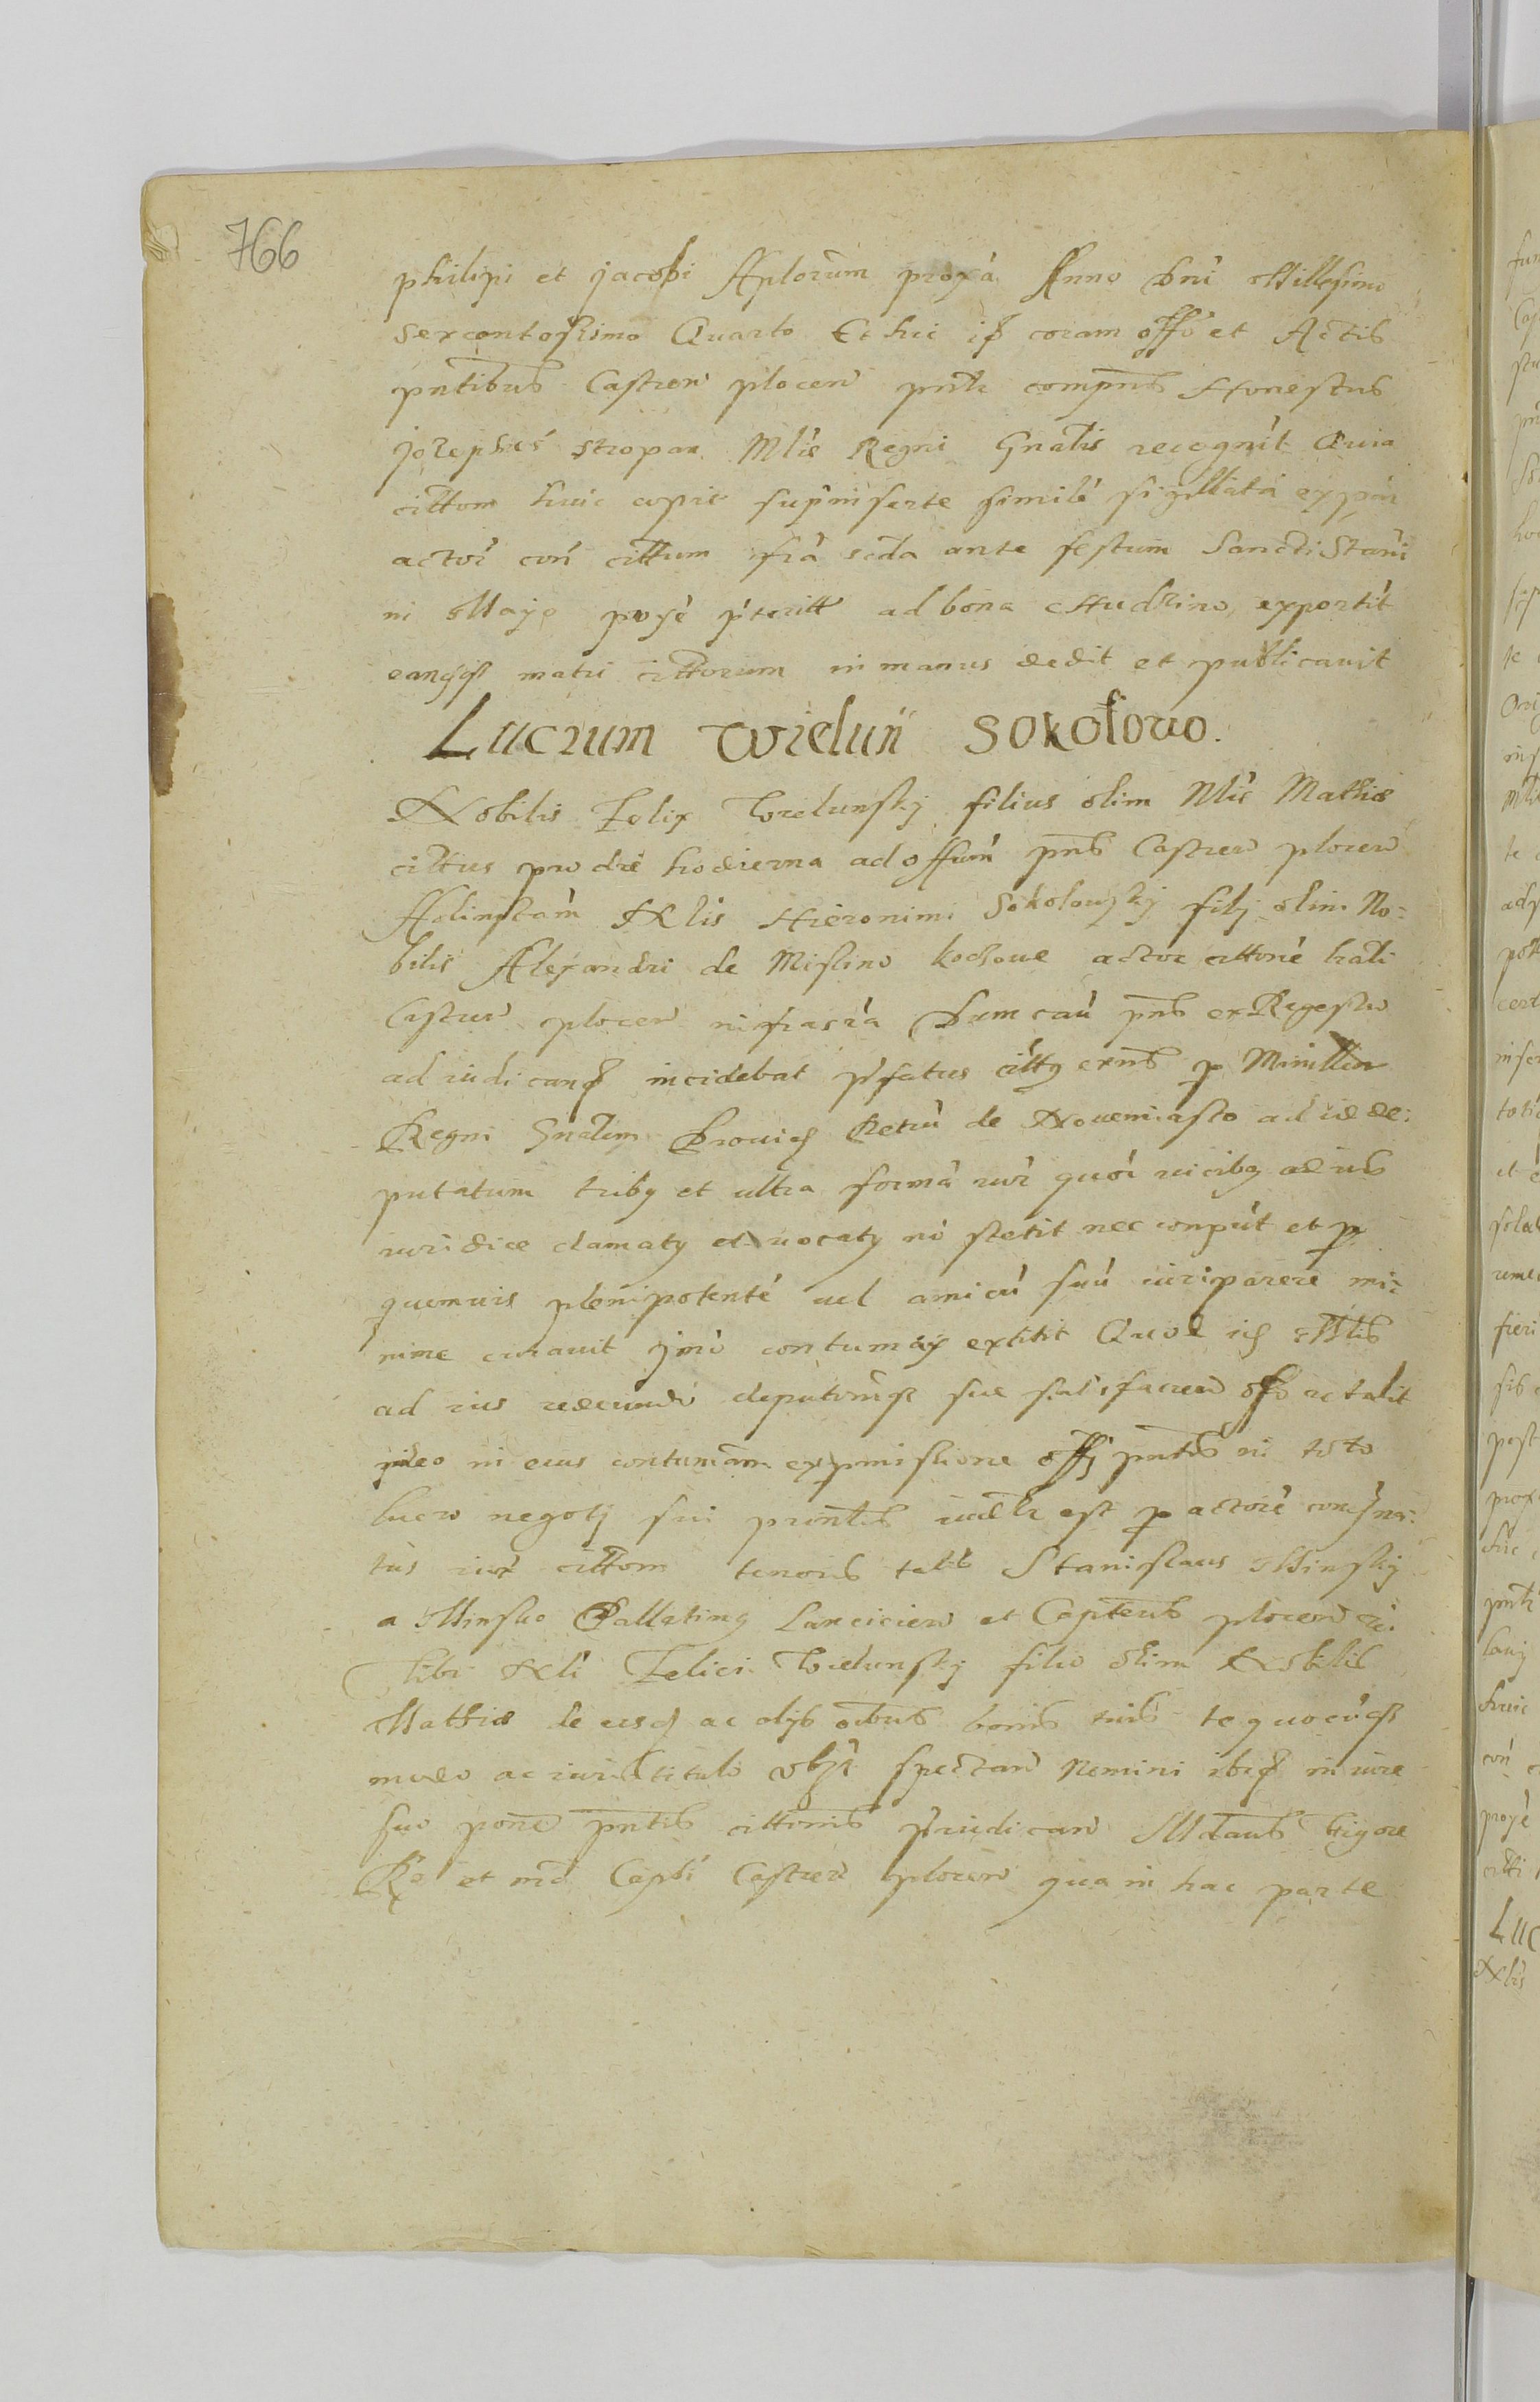 766
philipi et Jacobi Aplorum proxa Anno Dni Millesimo
sexcentesimo Quarto Et hic ip coram offo et Actis
pntibus Castren plocen pntr compns Honestus
Josephus stropan Mlis Regni Gnalis recognit Quia
cittom huic copie supinserte simile sigillata ex par
actor con cittum fria scda ante festum Sancti Stani
in Mayo proxe pteritt ad bona exportit
eandqz matri cittorum in manus dedit et publicauit
Lucrum Wielun Sokołowo.
Nobilis Felix Wielunsky filius olim Nlis Mathie
cittus pro die hodierna ad offum pns Castren plocen
Ad instam Nlis Hieronimi Sokolowsky filij olim No:
bilis Alexandri de Mislino Kochowe actor cittone trali
Castren plocen infrascra Dum cau pns ex Regestro
ad iudicand incidebat pfatus cittg exns p Minrllen
Regni Gnalem Prouid Petru de Nouemiasto ad id de:
putatum tribg et ultra forma iur quor vicibg ad ius
iuridice clamatg et vocatg no stetit nec conput et p
quemuis plenipotente uel amicu suu iuri parere mi:
nime curauit imo contumax extitit Quod id Mlis
ad ius reddendu deputomqz sue satisfacien offo retulit
ideo in eius contumam ex pmissione offi pntis in toto
lucro negotij sui printis iudtr est p actore condna:
tus iux cittom tenoris talis Stanislaus Minsky
a Minsko Pallating Lancicien et Capteus plocen
Tibi Nli Felici Wielunsky filio olim Nobilis
Mathie de eisd ac alijs oibus bonis tuis te quocuqz
modo ac iuris titulo spectan Nemini ibid in iure
suo pone pntis cittonis piudican Mdaus Vigore
Re et mei Capli Castren plocen qua in hac parte